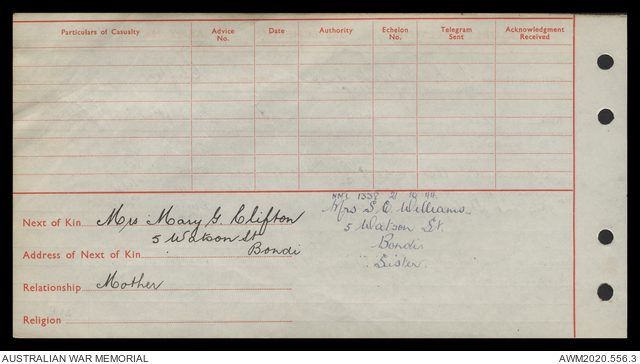 Particulars of Casualty Advice No. Date Authority Echelon No. Telegram Sent Acknowledgment Received
Next of Kin Mrs Mary G. Clifton
5 Watson St
Address of Next of Kin Bondi
Relationship Mother
Religion
21 10 44
Mrs S. C. Williams
5 Watson St.
Bondi
Sister
AUSTRALIAN WAR MEMORIAL AWM2020.556.3